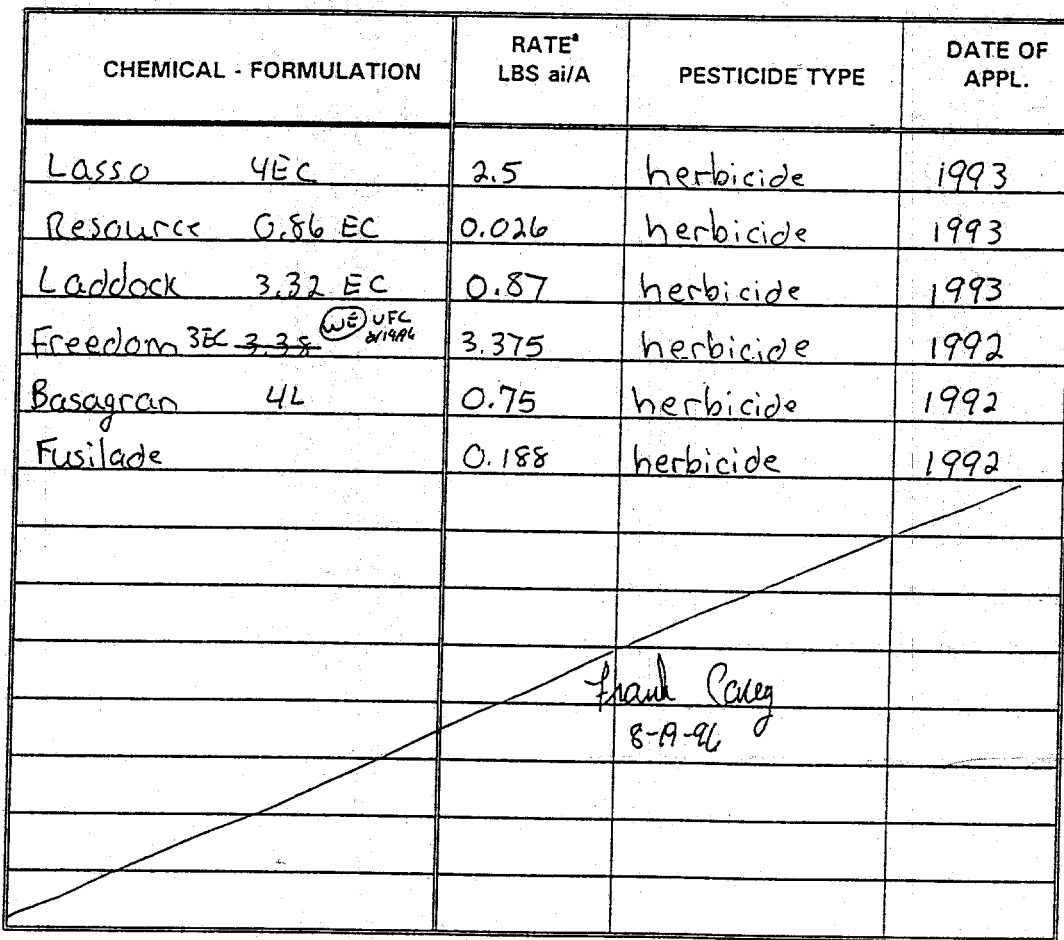 CHEMICAL - FORMULATION RATEª LBS ai/A PESTICIDE TYPE DATE OF APPL.
Lasso 4EC 2.5 herbicide 1993
Resource 0.86 EC 0.026 herbicide 1993
Laddock 3.32 EC 0.87 herbicide 1993
Freedom 3EC 3.38 WE 3.375 herbicide 1992
Basagran 4L 0.75 herbicide 1992
Fusilade 0.188 herbicide 1992
Frank Carey
8-19-96